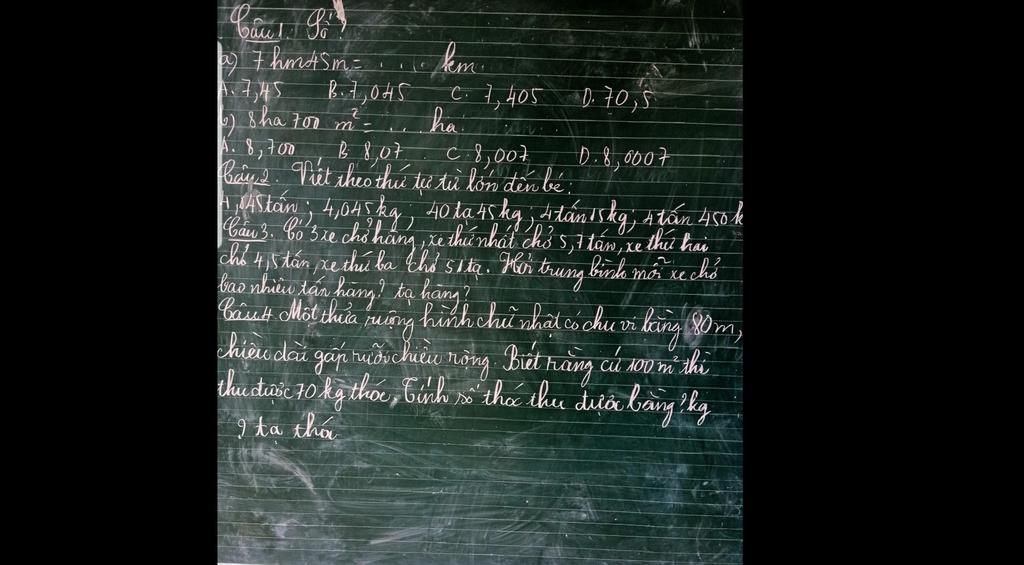 Câu 1. Số ?
a) 7 hm 45m = . . . . km.
A. 7,45 B. 7,045 C. 7,405 D. 70,5
b) 8ha 700 m² = . . . ha.
A. 8,700 B 8,07 C. 8,007 D. 8,0007
Câu 2. Viết theo thứ tự từ lớn đến bé:
4,045 tấn; 4,045 kg; 40 tạ 45 kg; 4 tấn 15 kg; 4 tấn 450 k
Câu 3. Có 3 xe chở hàng, xe thứ nhất chở 5,7 tấn, xe thứ hai
chở 4,5 tấn, xe thứ ba chở 51 tạ. Hỏi trung bình mỗi xe chở
bao nhiêu tấn hàng? tạ hàng?
Câu 4 Một thửa ruộng hình chữ nhật có chu vi bằng 80m,
chiều dài gấp rưỡi chiều rộng. Biết rằng cứ 100 m² thì
thu được 70 kg thóc. Tính số thóc thu được bằng ? kg
? tạ thóc